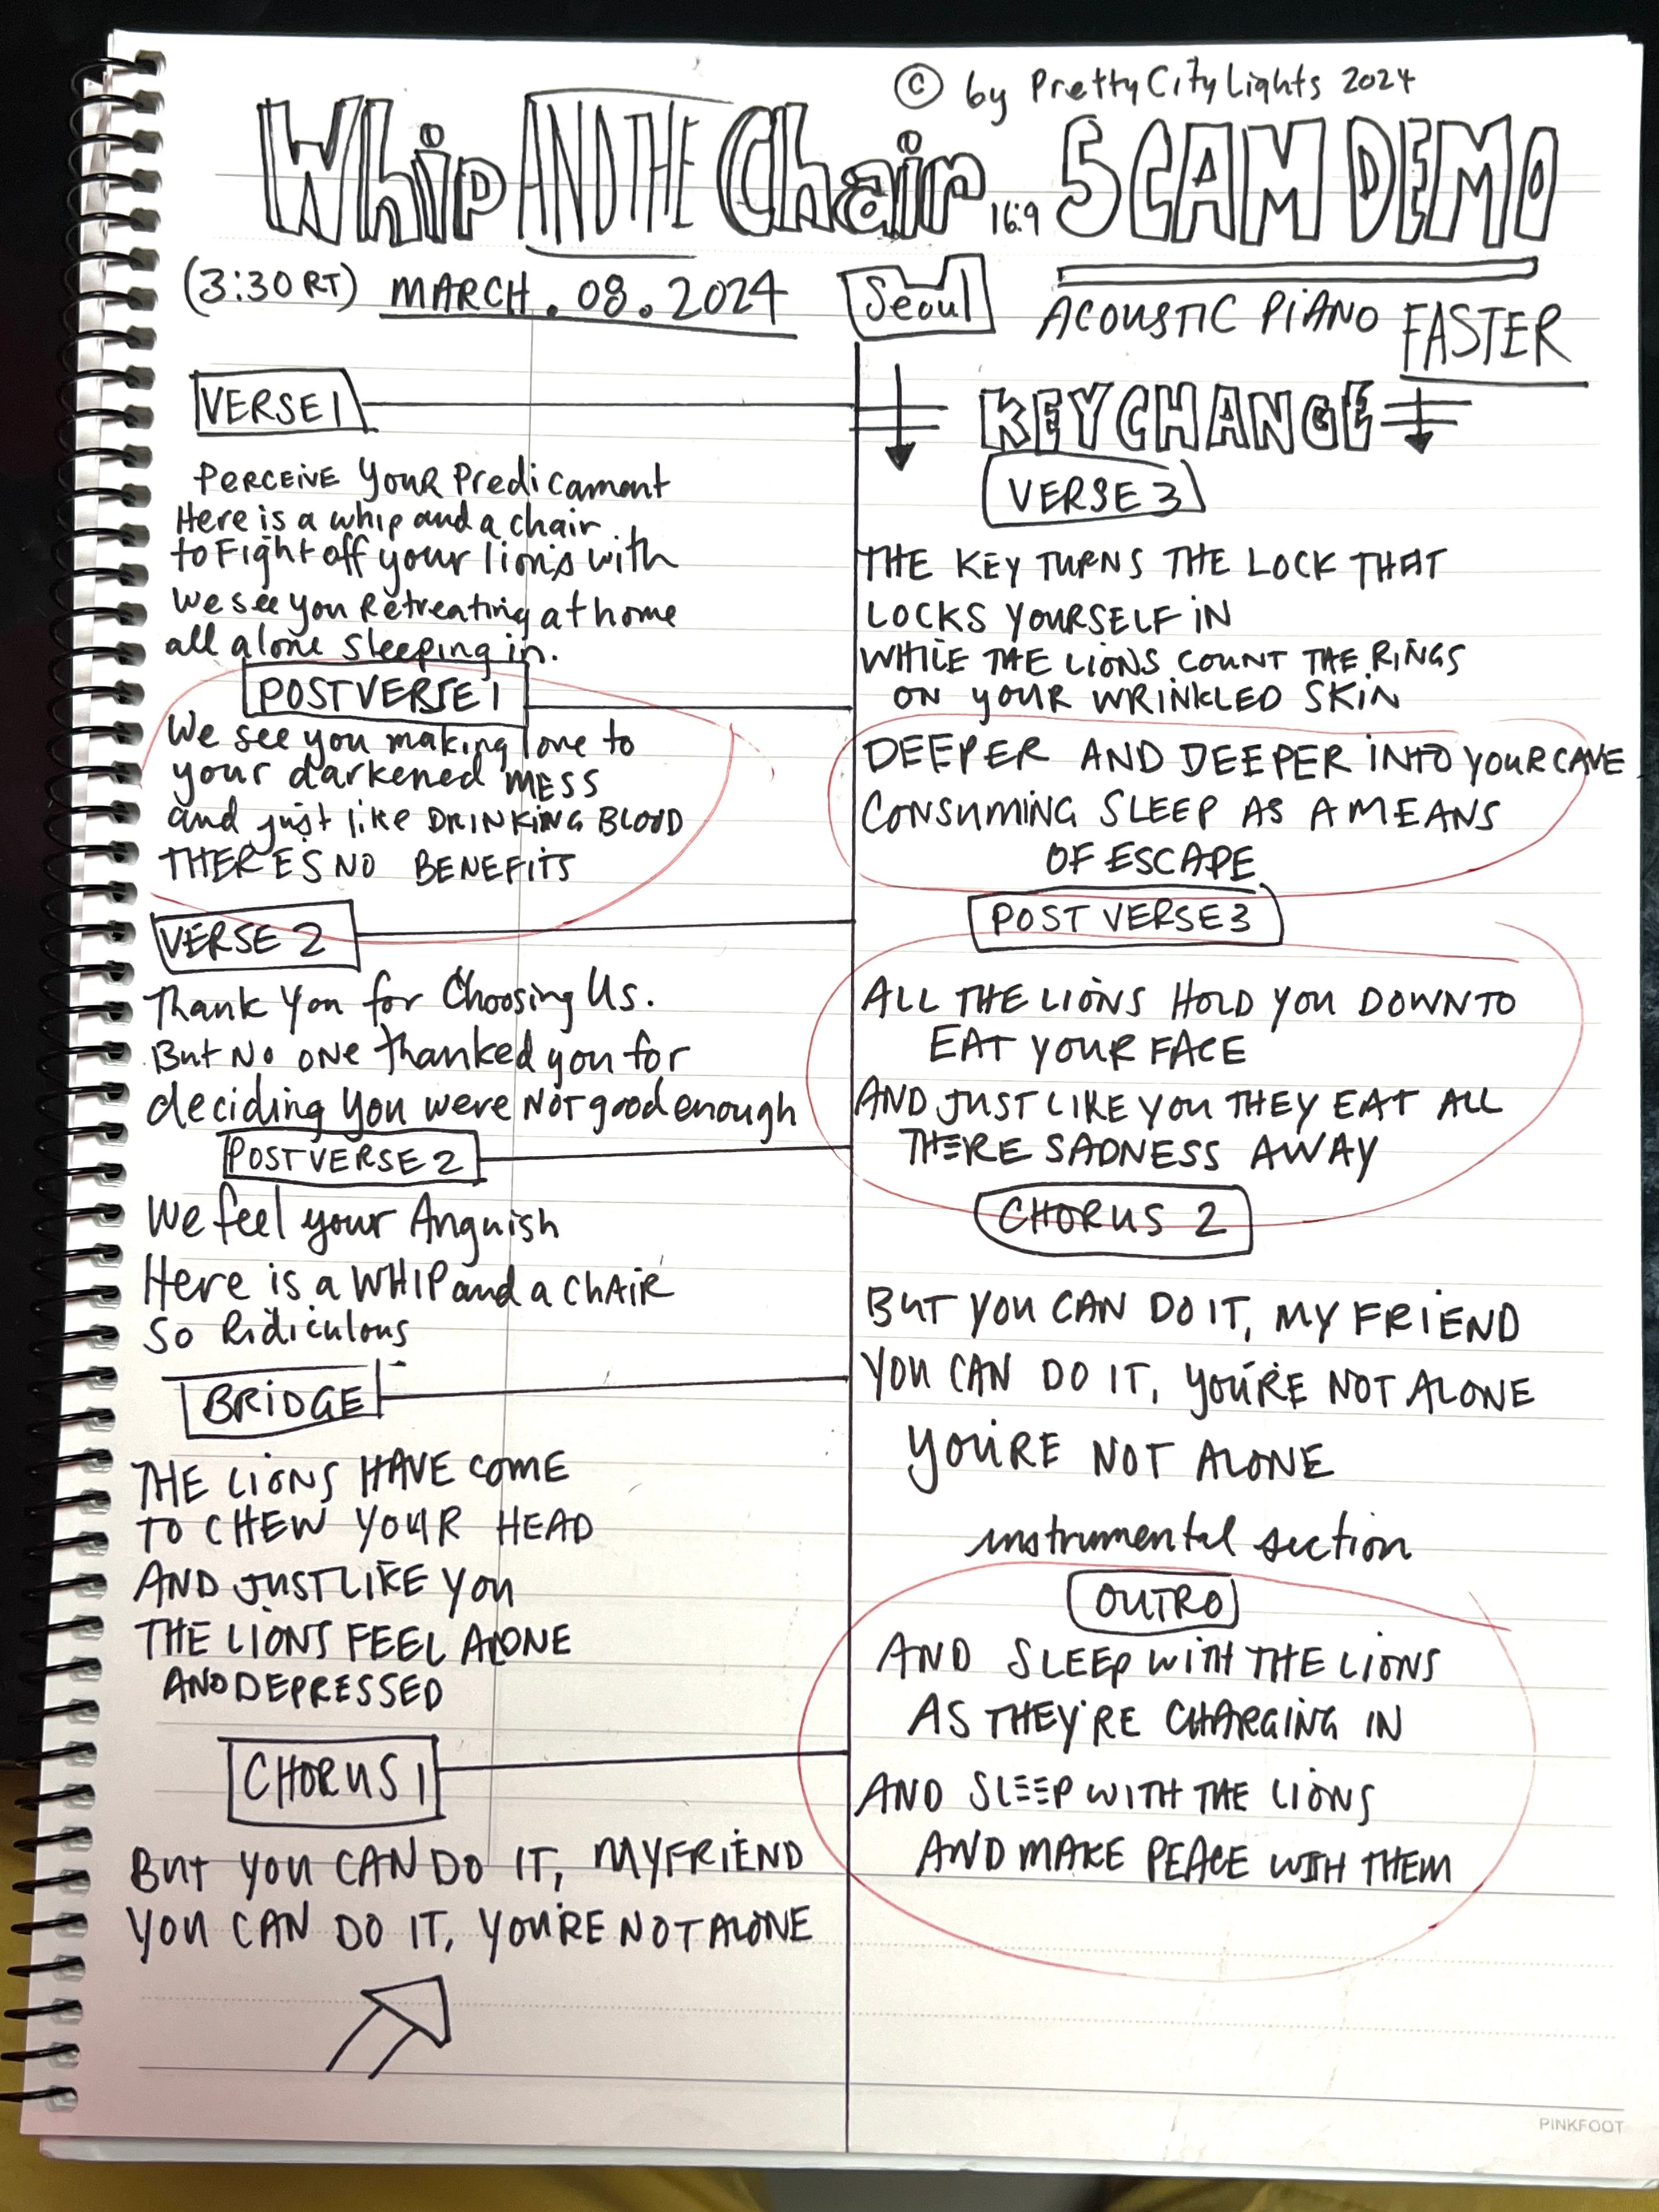 © by PrettyCityLights 2024
Whip AND THE Chair 16:9 SCAM DEMO
(3:30 RT) MARCH.08.2024 Seoul ACOUSTIC PIANO FASTER
VERSE 1
PERCEIVE YOUR Predicament
Here is a whip and a chair
to Fight off your lions with
We see you Retreating at home
all alone sleeping in.
POST VERSE 1
We see you making love to
your darkened MESS
and just like DRINKING BLOOD
THERE'S NO BENEFITS
VERSE 2
Thank You for Choosing Us.
But No one thanked you for
deciding you were NOT good enough
POST VERSE 2
We feel your Anguish
Here is a WHIP and a ChAIR
So Ridiculous
BRIDGE
THE LIONS HAVE COME
TO CHEW YOUR HEAD
AND JUST LIKE YOU
THE LIONS FEEL ALONE
AND DEPRESSED
CHORUS 1
BUT YOU CAN DO IT, MY FRIEND
YOU CAN DO IT, YOU'RE NOT ALONE
KEY CHANGE
VERSE 3
THE KEY TURNS THE LOCK THAT
LOCKS YOURSELF IN
WHILE THE LIONS COUNT THE RINGS
ON YOUR WRINKLED SKIN
DEEPER AND DEEPER INTO YOUR CAVE
CONSUMING SLEEP AS A MEANS
OF ESCAPE
POST VERSE 3
ALL THE LIONS HOLD YOU DOWN TO
EAT YOUR FACE
AND JUST LIKE YOU THEY EAT ALL
THERE SADNESS AWAY
CHORUS 2
BUT YOU CAN DO IT, MY FRIEND
YOU CAN DO IT, YOU'RE NOT ALONE
YOU'RE NOT ALONE
instrumental section
OUTRO
AND SLEEP WITH THE LIONS
AS THEY'RE CHARGING IN
AND SLEEP WITH THE LIONS
AND MAKE PEACE WITH THEM
PINKFOOT